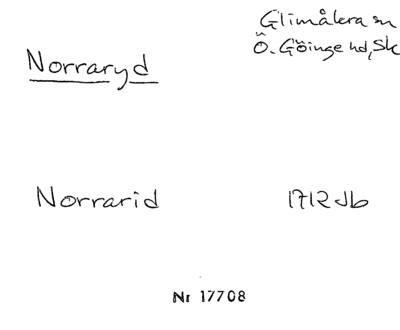 Glimåkra sn
Ö. Göinge hd, Sk
Norraryd
Norrarid 1712 Jb
Nr 17708